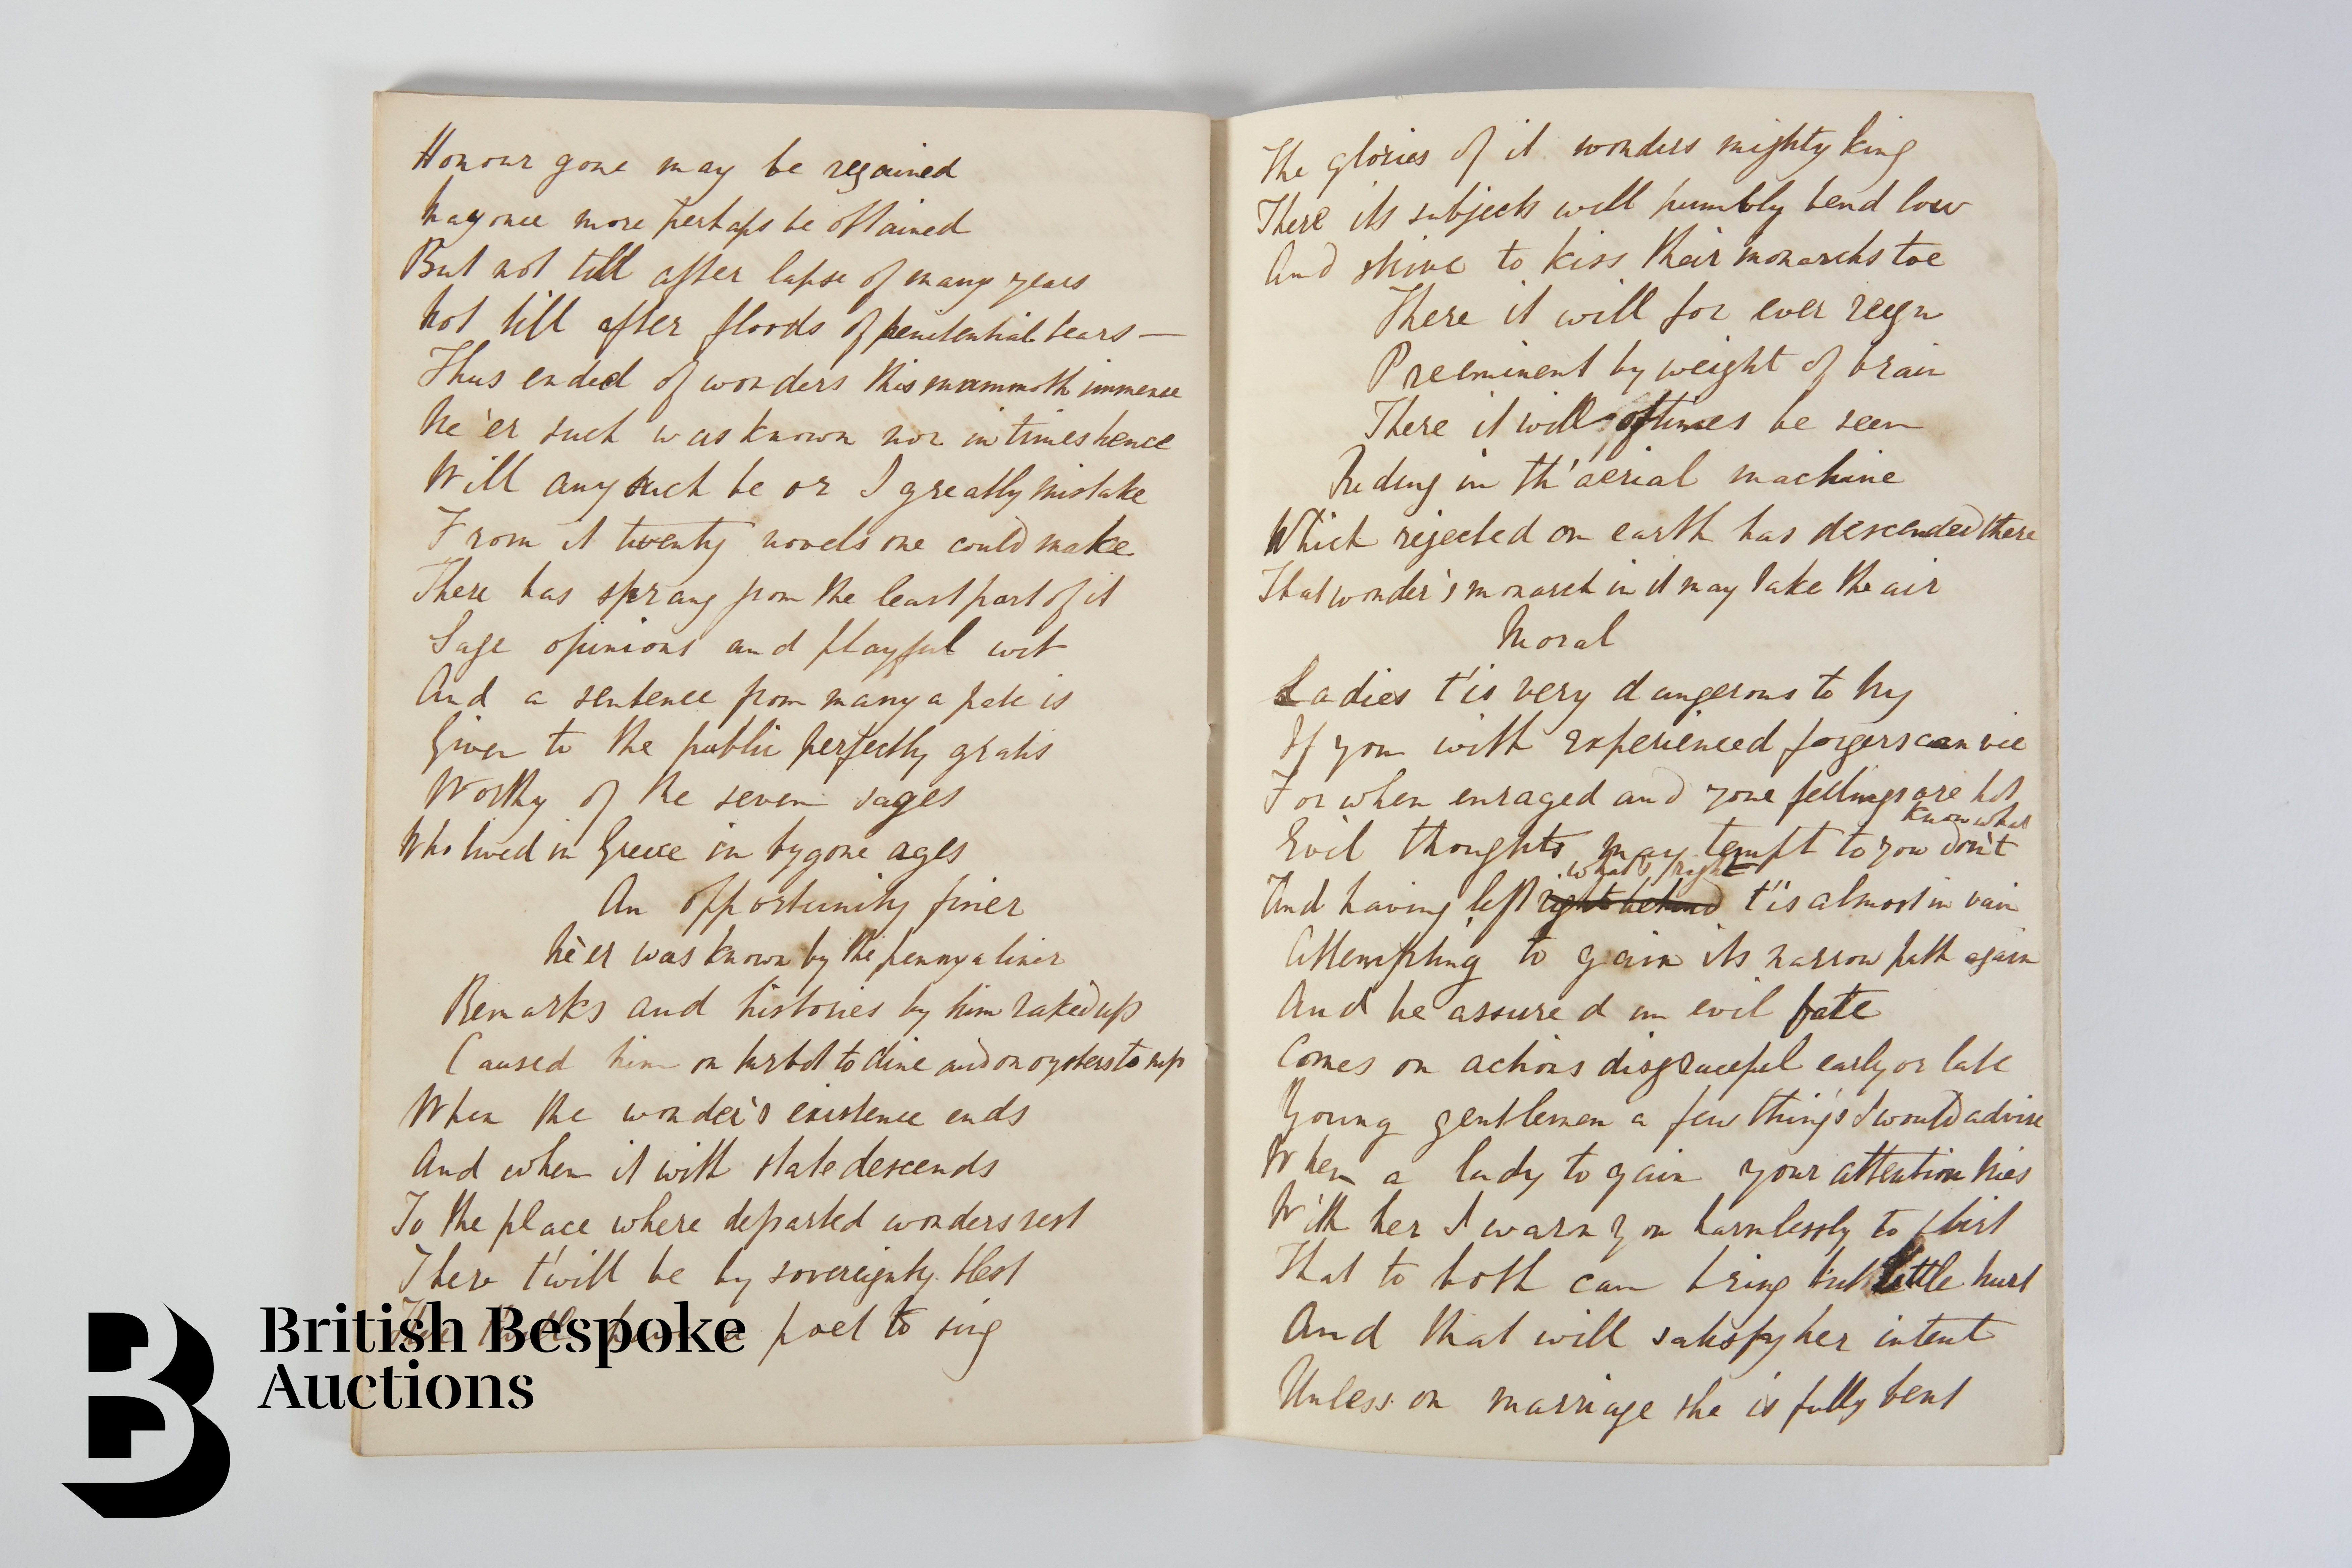 Honour gone may be regained
May once more perhaps be obtained
But not till after lapse of many years
Not till after floods of penitential tears —
Thus ended of wonders this mammoth immense
Ne'er such was known nor in times hence
Will any such be or I greatly mistake
From it twenty novels one could make
There has sprang from the least part of it
Sage opinions and playful wit
And a sentence from many a pate is
Given to the public perfectly gratis
Worthy of the seven sages
Who lived in Greece in bygone ages
An opportunity finer
Ne'er was known by the penny a liner
Remarks and histories by him raked up
Caused him on turbot to dine and on oysters to sup
When the wonder's existence ends
And when it with state descends
To the place where departed wonders rest
There t'will be by sovereignty blest
a poet to sing
The glories of it wonders mighty king
There its subjects will humbly bend low
And strive to kiss their monarchs toe
There it will for ever reign
Preeminent by weight of brain
There it will oftimes be seen
Riding in th'aerial machine
Which rejected on earth has descended there
That wonder's monarch in it may take the air
Moral
Ladies t'is very dangerous to try
If you with experienced forgers can vie
For when enraged and your feelings are hot
Evil thoughts may tempt to you don't know what
And having left right behind what's right t'is almost in vain
Attempting to gain its narrow path again
And be assured an evil fate
Comes on actions disgraceful early or late
Young gentlemen a few things I would advise
When a lady to gain your attention tries
With her I warn you harmlessly to flirt
That to both can bring but little hurt
And that will satisfy her intent
Unless on marriage she is fully bent
British Bespoke
Auctions